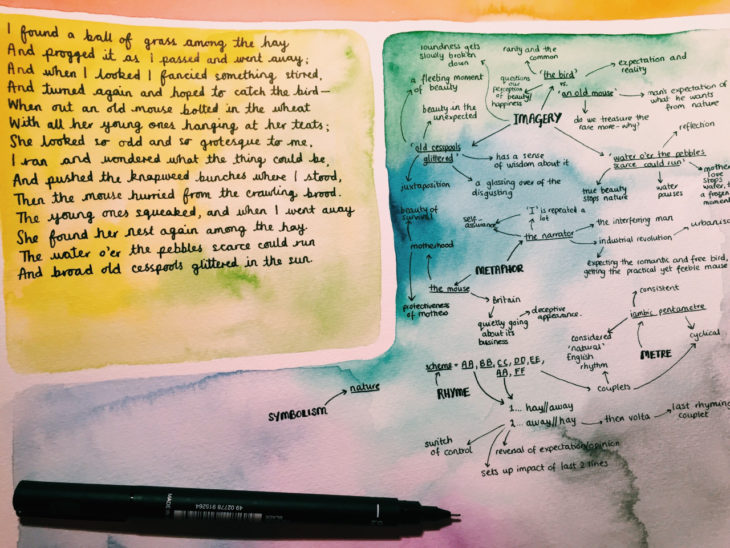 I found a ball of grass among the hay
And progged it as I passed and went away;
And when I looked I fancied something stirred,
And turned again and hoped to catch the bird—
When out an old mouse bolted in the wheat
With all her young ones hanging at her teats;
She looked so odd and so grotesque to me,
I ran and wondered what the thing could be,
And pushed the knapweed bunches where I stood,
Then the mouse hurried from the crawling brood.
The young ones squeaked, and when I went away
She found her nest again among the hay.
The water o'er the pebbles scarce could run
And broad old cesspools glittered in the sun.
IMAGERY
soundness gets
slowly broken
down
rarity and the
common
questions
our
perception
of beauty/
happiness
'the bird'
vs.
'an old mouse'
expectation and
reality
man's expectation of
what he wants
from nature
do we treasure the
rare more - why?
a fleeting moment
of beauty
beauty in the
unexpected
'old cesspools
glittered'
has a sense
of wisdom about it
juxtaposition
a glossing over of the
disgusting
'water o'er the pebbles
scarce could run'
reflection
true beauty
stops nature
water
pauses
love
stops
a frozen
METAPHOR
beauty of
survival
motherhood
the mouse
protectiveness
of mother
self-
assurance
'I' is repeated a
lot
the narrator
the interfering man
industrial revolution
expecting the romantic and free bird,
getting the practical yet feeble mouse
Britain
quietly going
about its
business
deceptive
appearance.
METRE
consistent
iambic pentametre
considered
'natural'
English
rhythm
cyclical
couplets
RHYME
scheme = AA, BB, CC, DD, EE,
AA, FF
1... hay//away
2... away//hay
then volta
last rhyming
couplet
switch
of control
reversal of expectation/opinion
sets up impact of last 2 lines
SYMBOLISM
nature
MADE IN
49 02778 915264
BLACK